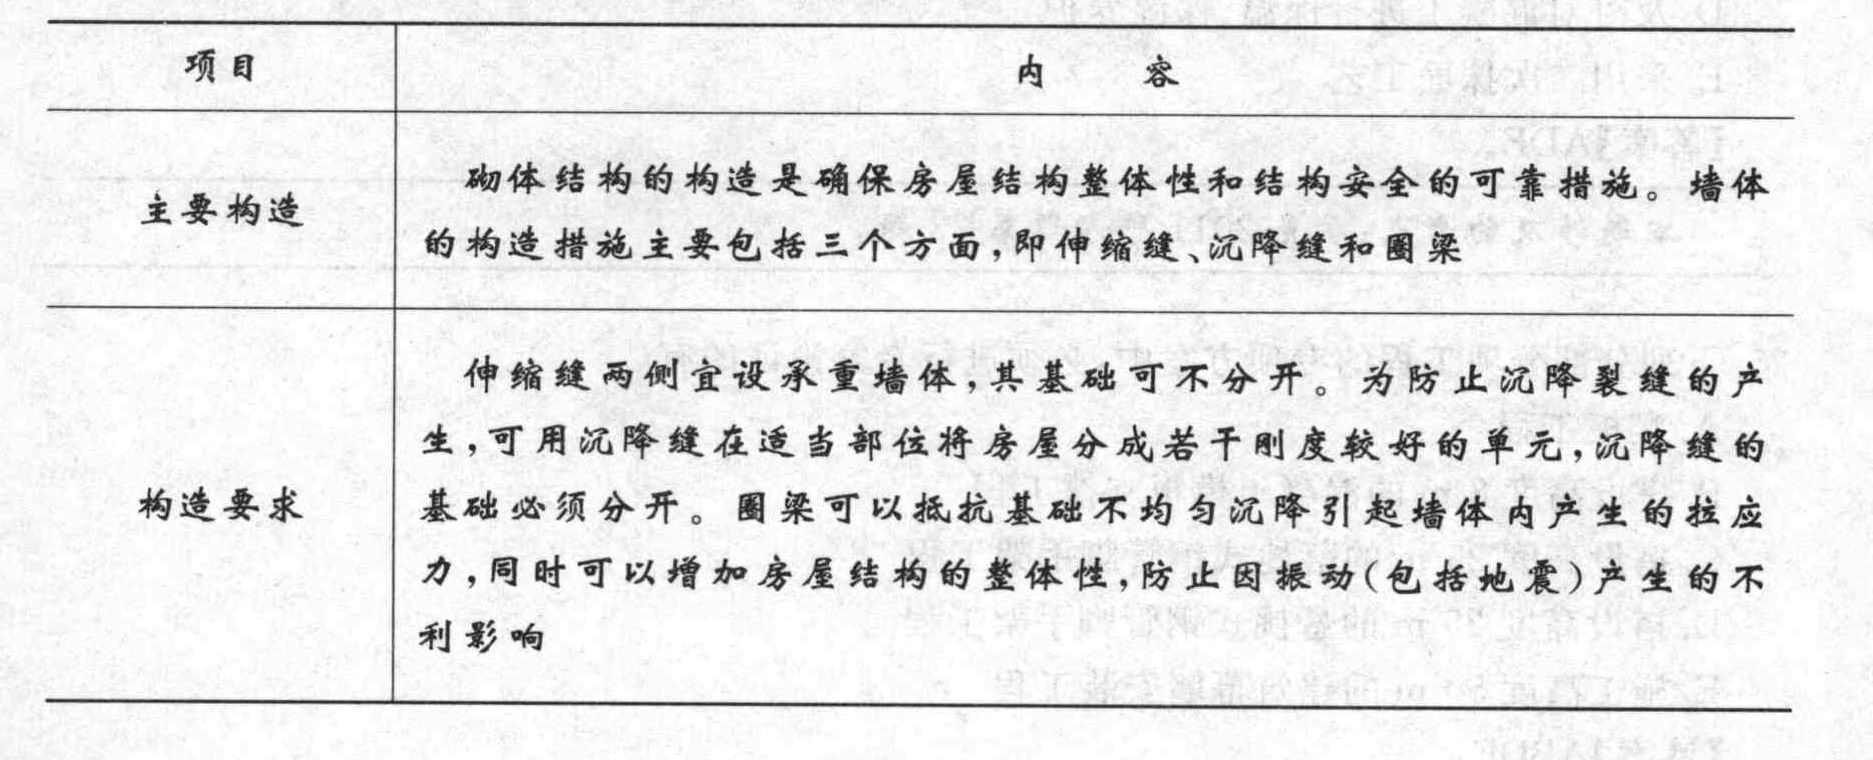 项目
内 容
主要构造
砌体结构的构造是确保房屋结构整体性和结构安全的可靠措施。墙体
的构造措施主要包括三个方面,即伸缩缝、沉降缝和圈梁
构造要求
伸缩缝两侧宜设承重墙体,其基础可不分开。为防止沉降裂缝的产
生,可用沉降缝在适当部位将房屋分成若干刚度较好的单元,沉降缝的
基础必须分开。圈梁可以抵抗基础不均匀沉降引起墙体内产生的拉应
力,同时可以增加房屋结构的整体性,防止因振动(包括地震)产生的不
利影响